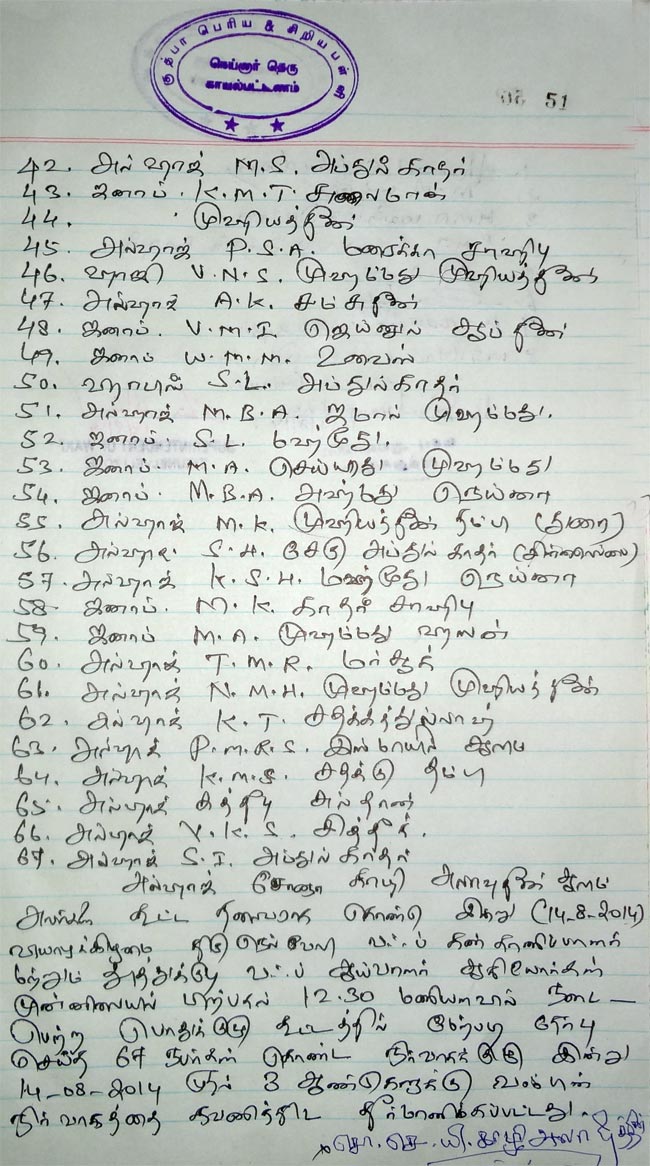 குத்பா பெரிய & சிறிய பள்ளி
நெய்னார் தெரு
காயல்பட்டணம்
51
42. அல்ஹாஜ் M.S. அப்துல் காதர்
43. ஜனாப். K.M.T. சுலைமான்
44. முஹியத்தீன்
45. அல்ஹாஜ் P.S.A. மரைக்கா சாஹிபு
46. ஹாஜி V.N.S. முஹம்மது முஹியத்தீன்
47. அல்ஹாஜ் A.K. சம்சுதீன்
48. ஜனாப். V.M.I ஜெய்னுல் ஆப்தீன்
49. ஜனாப் W.M.M. உவைஸ்
50. ஹாபிஸ் S.L. அப்துல்காதர்
51. அல்ஹாஜ் M.B.A. ஜமால் முஹம்மது.
52. ஜனாப். S.L. மஹ்மூது.
53. ஜனாப். M.A. செய்யது முஹம்மது
54. ஜனாப். M.B.A. அஹ்மது நெய்னா
55. அல்ஹாஜ் M.K. முஹியத்தீன் தம்பி (துரை)
56. அல்ஹாஜ். S.H. சேகு அப்துல் காதர்
57. அல்ஹாஜ் K.S.H. மஹ்மூது நெய்னா
58. ஜனாப். M.K. காதர் சாஹிபு
59. ஜனாப் M.A. முஹம்மது ஹஸன்
60. அல்ஹாஜ் T.M.R. மர்சூக்
61. அல்ஹாஜ் N.M.H. முஹம்மது முஹியத்தீன்
62. அல்ஹாஜ் K.T. சதக்கத்துல்லாஹ்
63. அல்ஹாஜ் P.M.R.S. இஸ்மாயில் ஆலிம்
64. அல்ஹாஜ் K.M.S. சதக்கு தம்பி
65. அல்ஹாஜ் கத்தீபு சுல்தான்
66. அல்ஹாஜ் V.K.S. சித்தீக்.
67. அல்ஹாஜ் S.I. அப்துல் காதர்
அல்ஹாஜ் சோனா காழி அலாவுதீன் ஆலிம்
கூட்ட தலைவராக கொண்டு இன்று (14-8-2014)
வியாழக்கிழமை திருநெல்வேலி வஃப் கண்காணிப்பாளர்
மற்றும் தூத்துக்குடி வஃப் ஆய்வாளர் ஆகியோர்கள்
முன்னிலையில் பிற்பகல் 12.30 மணியளவில் நடை-
பெற்ற பொதுக்குழு கூட்டத்தில் மேற்படி தேர்வு
செய்த 67 நபர்கள் கொண்ட நிர்வாகக்குழு இன்று
14-08-2014 முதல் 3 ஆண்டுகளுக்கு வஃபின்
நிர்வாகத்தை கவனித்திட தீர்மானிக்கப்பட்டது.